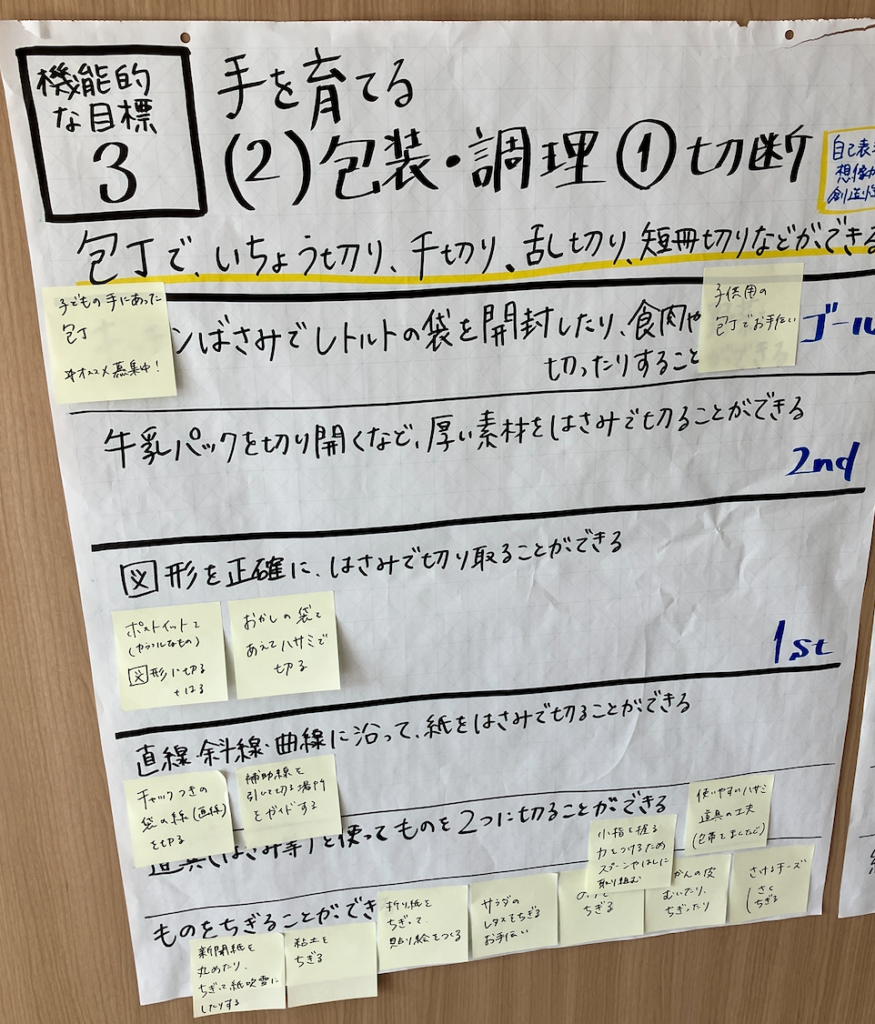 機能的
な目標
3
手を育てる
(2)包装・調理①切断
自己表
想像力
創造性
包丁で、いちょう切り、千切り、乱切り、短冊切りなどができる
子どもの手にあった
包丁
※オススメ募集中!
ンばさみでレトルトの袋を開封したり、食肉や
切ったりすること
子供用の
包丁でお手伝い
ゴール
牛乳パックを切り開くなど、厚い素材をはさみで切ることができる
2nd
図形を正確に、はさみで切り取ることができる
ポストイットを
(カラフルなもの)
図形に切る
おかしの袋を
あえてハサミで
切る
1st
直線・斜線・曲線に沿って、紙をはさみで切ることができる
チャックつきの
袋の線(直線)
を切る
補助線を
引いて切る場所
をガイドする
道具(はさみ等)を使ってものを2つに切ることができる
小指を握る
力をつけるため
スプーンやはしに
取り組む
使いやすいハサミ
道具の工夫
ものをちぎることができ
新聞紙を
丸めたり、
ちぎって紙吹雪に
したりする
粘土を
ちぎる
折り紙を
ちぎって、
貼り絵をつくる
サラダの
レタスをちぎる
お手伝い
ちぎる
かんの皮
むいたり、
ちぎったり
さけるチーズ
さく
ちぎる